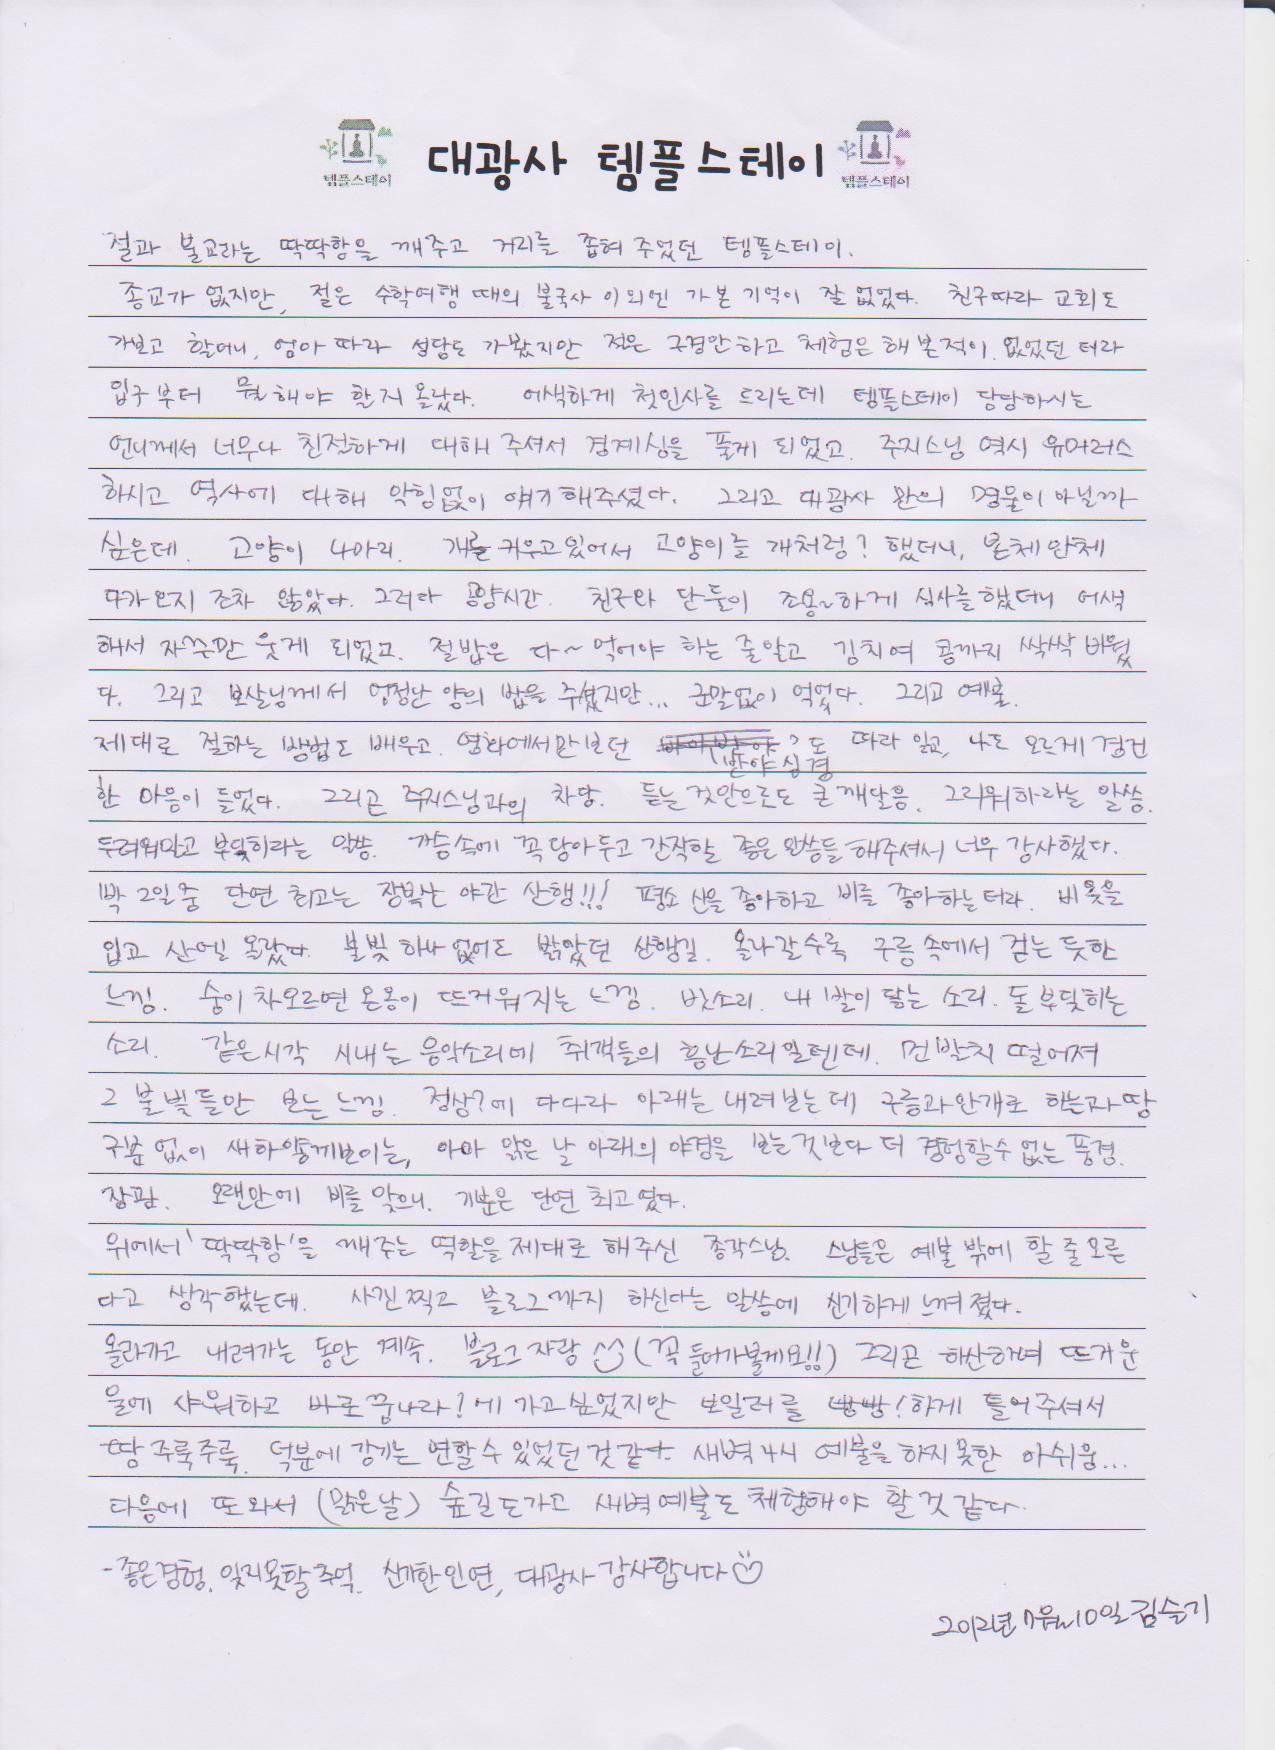 대광사 템플스테이
템플스테이
템플스테이
절과 불교라는 딱딱함을 깨주고 거리를 좁혀 주었던 템플스테이.
종교가 없지만, 절은 수학여행 때의 불국사 이외엔 가본 기억이 잘 없었다. 친구따라 교회도
가보고 할머니, 엄마 따라 성당도 가봤지만 절은 구경만하고 체험은 해 본적이 없었던 터라
입구부터 뭘 해야 할지 몰랐다. 어색하게 첫인사를 드리는데 템플스테이 담당하시는
언니께서 너무나 친절하게 대해 주셔서 경계심을 풀게 되었고. 주지스님 역시 유머러스
하시고 역사에 대해 막힘없이 얘기해주셨다. 그리고 대광사 만의 명물이 아닐까
싶은데. 고양이 4마리. 개를 키우고 있어서 고양이를 개처럼? 했더니, 본체만체
다가오지 조차 않았다. 그러다 공양시간. 친구와 단둘이 조용~하게 식사를 했더니 어색
해서 자꾸만 웃게 되었고. 절밥은 다~ 먹어야 하는 줄알고 김치며 콩까지 싹싹 비웠
다. 그리고 보살님께서 엄청난 양의 밥을 주셨지만... 군말없이 먹었다. 그리고 예불.
제대로 절하는 방법도 배우고. 영화에서만 보던 반야심경도 따라 읽고, 나도 모르게 경건
한 마음이 들었다. 그리곤 주지스님과의 차담. 듣는 것만으로도 큰 깨달음. 그리워하라는 말씀.
두려워말고 부딪히라는 말씀. 가슴속에 꼭 담아두고 간직할 좋은 말씀들 해주셔서 너무 감사했다.
박 2일 중 단연 최고는 장복산 야간 산행!!! 평소 산을 좋아하고 비를 좋아하는터라. 비옷을
입고 산에 올랐다. 불빛 하나 없어도 밝았던 산행길. 올라갈수록 구름 속에서 걷는 듯한
느낌. 숨이 차오르면 온몸이 뜨거워지는 느낌. 빗소리. 내 발이 닿는 소리. 돌 부딪히는
소리. 같은시각 시내는 음악소리에 취객들의 흥난소리일텐데. 먼발치 떨어져
그 불빛들만 보는 느낌. 정상?에 다다라 아래는 내려보는데 구름과안개로 하늘과 땅
구분 없이 새하얗게보이는, 아마 맑은 날 아래의 야경을 보는것보다 더 경험할수 없는 풍경.
장관. 오랜만에 비를 맞으니. 기분은 단연 최고였다.
위에서 '딱딱함'을 깨주는 역할을 제대로 해주신 종각스님. 스님들은 예불 밖에 할 줄 모른
다고 생각했는데. 사진찍고 블로그까지 하신다는 말씀에 신기하게 느껴졌다.
올라가고 내려가는 동안 계속. 블로그 자랑 (꼭 들어가볼게요!!) 그리곤 하산하여 뜨거운
물에 샤워하고 바로 꿈나라!에 가고싶었지만 보일러를 빵빵!하게 틀어주셔서
땀 주룩주룩. 덕분에 감기는 면할 수 있었던 것 같다. 새벽 4시 예불을 하지못한 아쉬움...
다음에 또 와서 (맑은날) 숲길도가고 새벽예불도 체험해야 할 것 같다.
-좋은경험. 잊지못할 추억. 신기한 인연, 대광사 감사합니다
2012년 7월 10일 김슬기